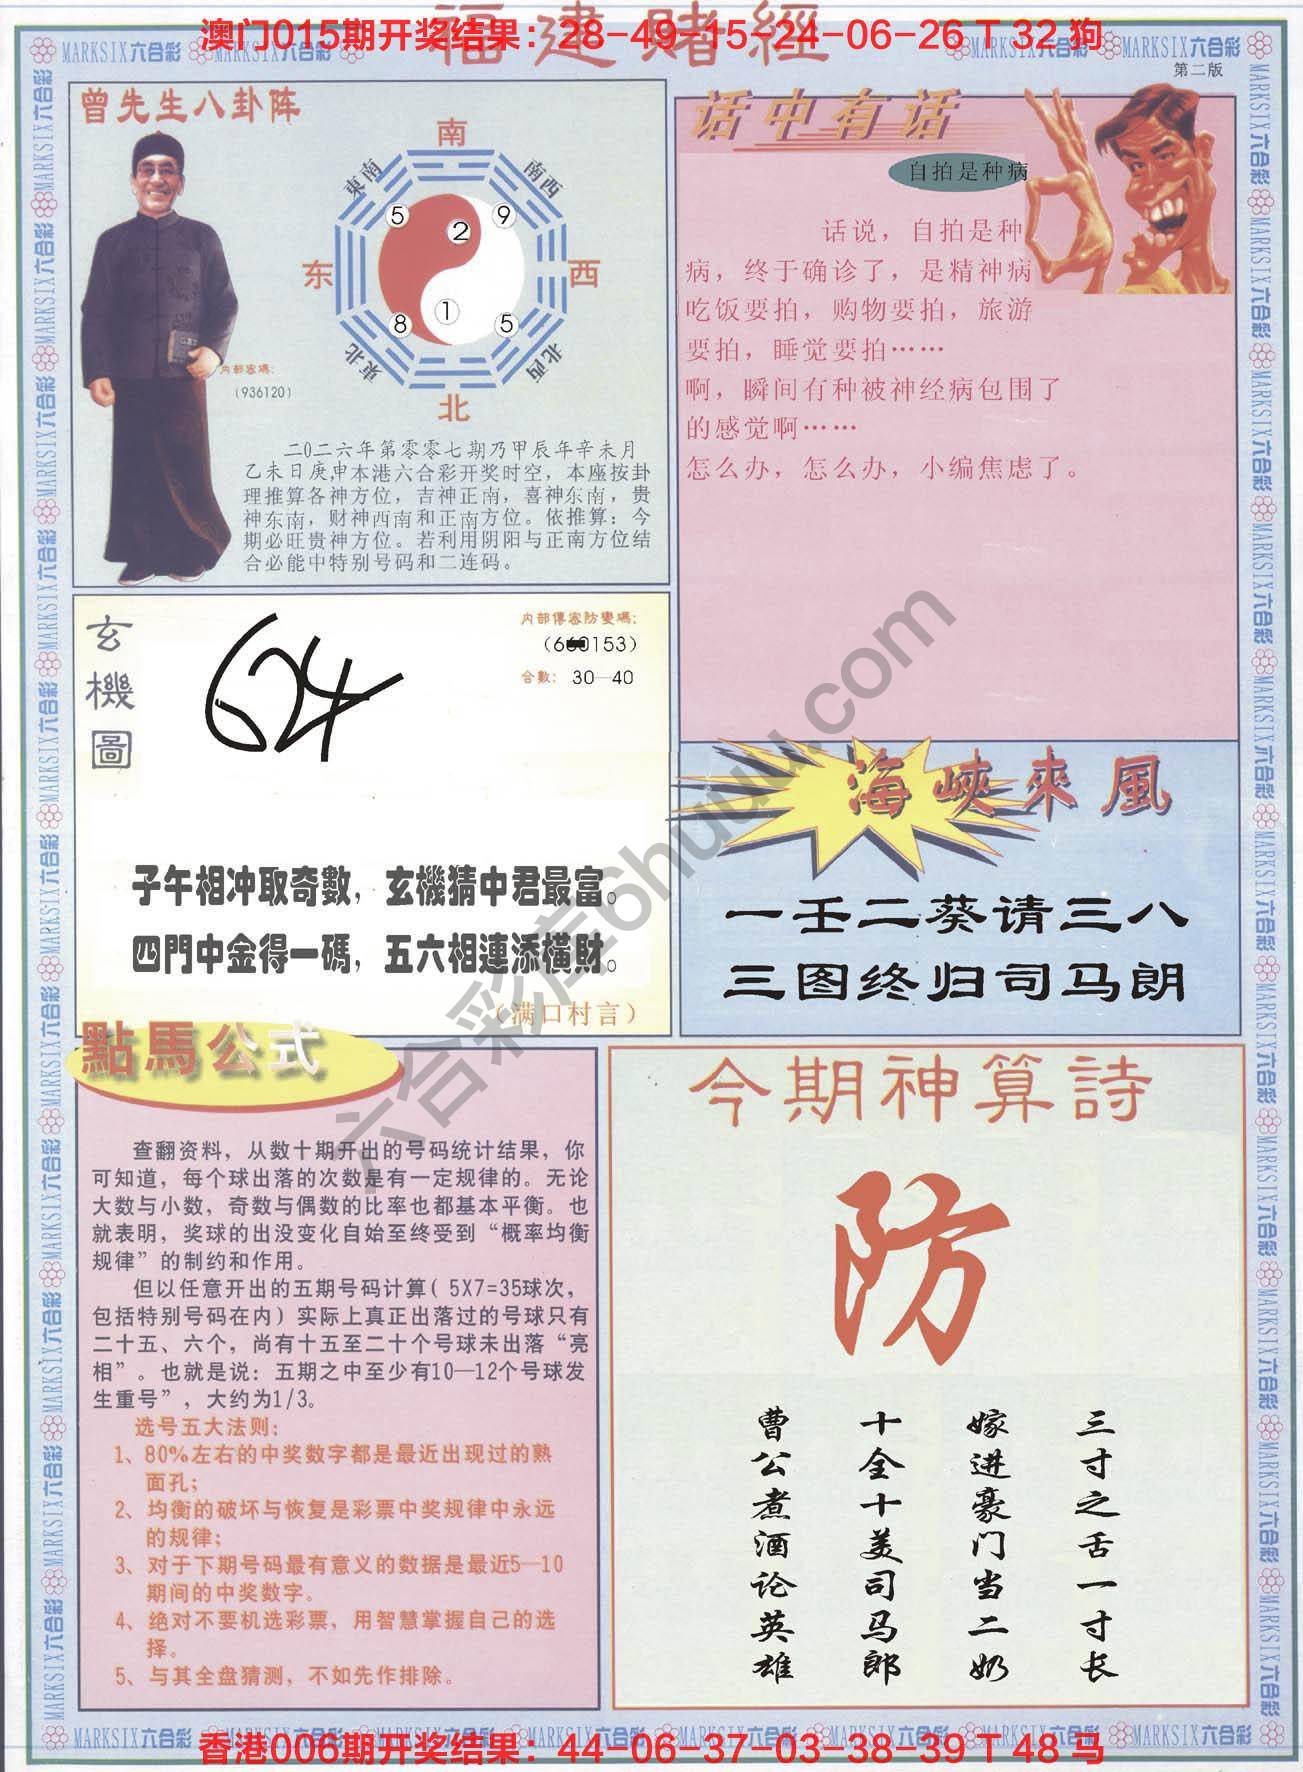 福建賭經
澳门015期开奖结果：28-49-15-24-06-26 T 32 狗
MARKSIX六合彩
第二版
曾先生八卦阵
南
東南
南西
5
9
2
东
西
1
8
5
東北
北西
北
内部密碼：
（936120）
二〇二六年第零零七期乃甲辰年辛未月
乙未日庚申本港六合彩开奖时空，本座按卦
理推算各神方位，吉神正南，喜神东南，贵
神东南，财神西南和正南方位。依推算：今
期必旺贵神方位。若利用阴阳与正南方位结
合必能中特别号码和二连码。
话中有话
自拍是种病
话说，自拍是种
病，终于确诊了，是精神病
吃饭要拍，购物要拍，旅游
要拍，睡觉要拍……
啊，瞬间有种被神经病包围了
的感觉啊……
怎么办，怎么办，小编焦虑了。
玄機圖
内部傳密防變碼：
合數：30—40
子午相冲取奇數，玄機猜中君最富。
四門中金得一碼，五六相連添橫財。
（满口村言）
海峽來風
一壬二葵请三八
三图终归司马朗
點馬公式
查翻资料，从数十期开出的号码统计结果，你
可知道，每个球出落的次数是有一定规律的。无论
大数与小数，奇数与偶数的比率也都基本平衡。也
就表明，奖球的出没变化自始至终受到“概率均衡
规律”的制约和作用。
但以任意开出的五期号码计算( 5X7=35球次，
包括特别号码在内) 实际上真正出落过的号球只有
二十五、六个，尚有十五至二十个号球未出落“亮
相”。也就是说：五期之中至少有10—12个号球发
生重号”，大约为1/3。
选号五大法则：
1、80%左右的中奖数字都是最近出现过的熟
面孔；
2、均衡的破坏与恢复是彩票中奖规律中永远
的规律；
3、对于下期号码最有意义的数据是最近5—10
期间的中奖数字。
4、绝对不要机选彩票，用智慧掌握自己的选
择。
5、与其全盘猜测，不如先作排除。
今期神算詩
防
三寸之舌一寸长
嫁进豪门当二奶
十全十美司马郎
曹公煮酒论英雄
六合彩库6huuu.com
香港006期开奖结果：44-06-37-03-38-39 T 48 马